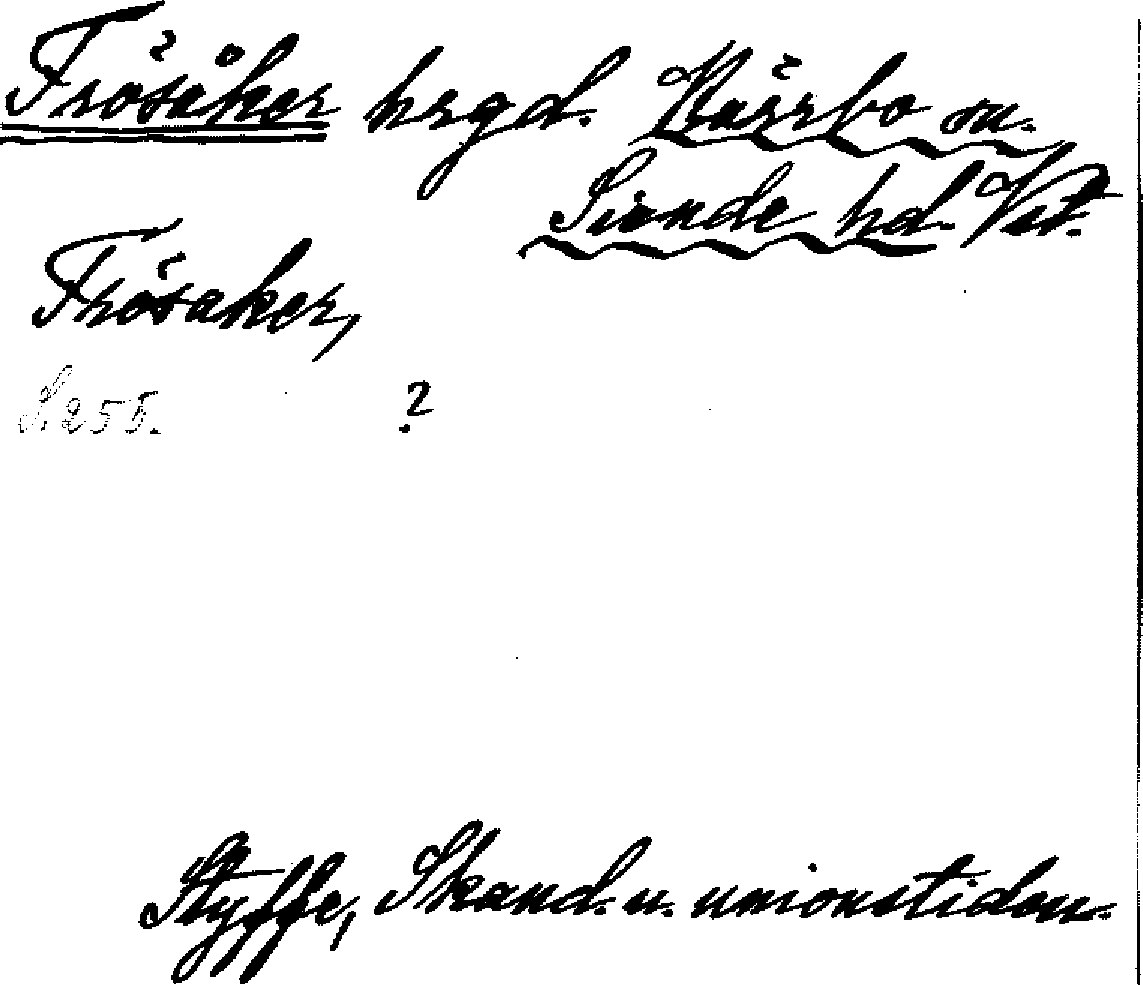 Frösåker hrgd. Kärrbo sn.
Siende hd. Vstm.
Frösaker,
S. 255. ?
Styffe, Skand. u. unionstiden.